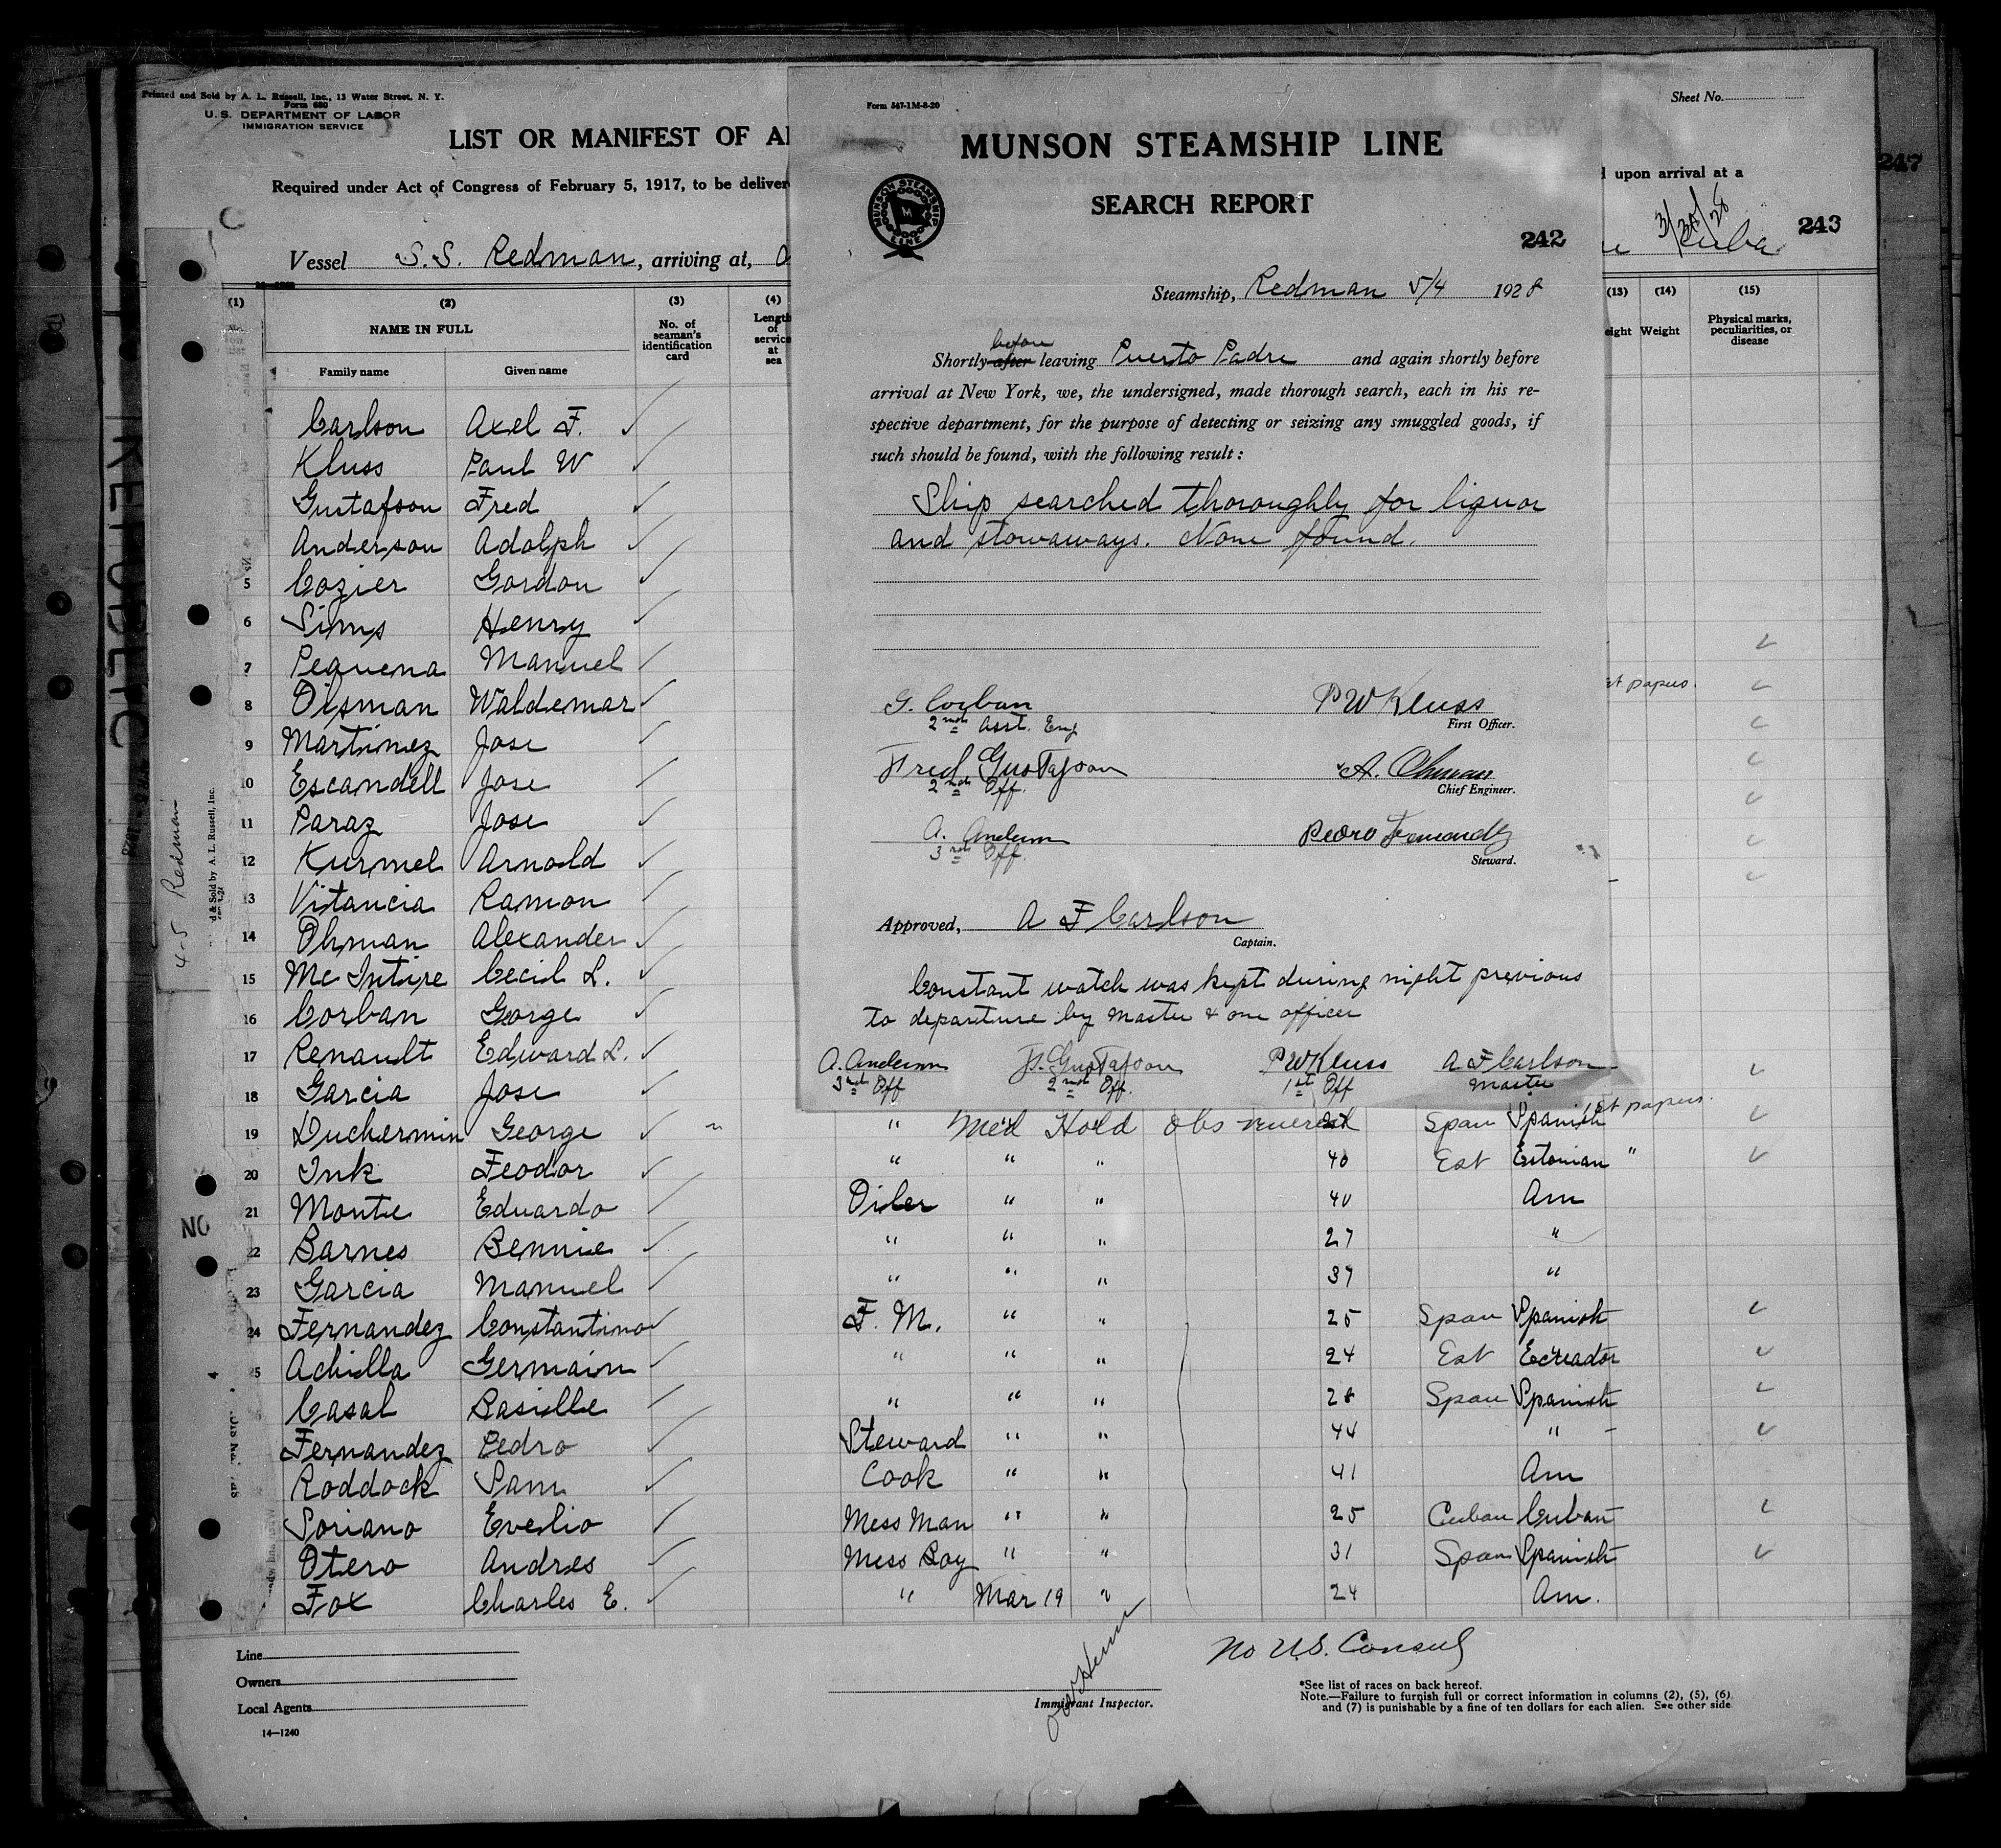 Printed and Sold by A. L. Russell, Inc., 13 Water Street, N. Y.
Form 680
U. S. DEPARTMENT OF LABOR
IMMIGRATION SERVICE
LIST OR MANIFEST OF
Required under Act of Congress of February 5, 1917, to be deliver
Vessel S.S. Redman, arriving at,
Sheet No.
d upon arrival at a
3/30/28
Cuba
243
247
(1) (2) (3) (4)
NAME IN FULL
Family name Given name
No. of seaman's identification card
Length of service at sea
(13) (14) (15)
eight Weight Physical marks, peculiarities, or disease
Form 547-1M-8-20
MUNSON STEAMSHIP LINE
SEARCH REPORT
MUNSON STEAMSHIP LINE
M
242
Steamship, Redman 5/4 1928
before
Shortly after leaving Puerto Padre and again shortly before
arrival at New York, we, the undersigned, made thorough search, each in his re-
spective department, for the purpose of detecting or seizing any smuggled goods, if
such should be found, with the following result:
Ship searched thoroughly for liquor
and stowaways. None found.
G. Corban PW Kluss
2nd Asst. Eng First Officer.
Fred Gustafson A. Ohman
2nd Off. Chief Engineer.
A. Anderson Pedro Fernandez
3rd Off. Steward.
Approved, A F Carlson
Captain.
Constant watch was kept during night previous
to departure by master & one officer
A. Anderson F. Gustafson PW Kluss A F Carlson
3rd Off 2nd Off. 1st Off Master
Carlson Axel F. ✓
Kluss Paul W ✓
Gustafson Fred ✓
Anderson Adolph ✓
5 Cozier Gordon ✓
6 Sims Henry ✓
7 Pequena Manuel ✓
8 Oisman Waldemar ✓
9 Martinez Jose ✓
10 Escandell Jose ✓
11 Paraz Jose ✓
12 Kurmel Arnold ✓
13 Vitancia Ramon ✓
14 Ohman Alexander ✓
15 McIntire Cecil L. ✓
16 Corban George ✓
17 Renault Edward L. ✓
18 Garcia Jose ✓
1st papers.
19 Duchermin George ✓ " Med Hold obs Span Spanish ✓
20 Ink Feodor ✓ " " " 40 Est Estonian " ✓
21 Monte Eduardo ✓ Oiler " " 40 Am
22 Barnes Bennie ✓ " " " 27 "
23 Garcia Manuel ✓ " " " 37 "
24 Fernandez Constantino ✓ F. M. " " 25 Span Spanish ✓
25 Achilla Germain ✓ " " " 24 Est Ecreador ✓
Casal Basille ✓ " " " 28 Span Spanish ✓
Fernandez Pedro ✓ Steward " " 44 " ✓
Roddock Sam ✓ Cook " " 41 Am
Soriano Evelio ✓ Mess Man " " 25 Cuban Cuban ✓
Otero Andres ✓ Mess Boy " " 31 Span Spanish ✓
Fox Charles E. ✓ " Mar 19 " 24 Am.
4-5 Redman
d & Sold by A. L. Russell, Inc.
REPUBLIC
NO
Line
Owners
Local Agents
14—1240
Immigrant Inspector.
No U.S. Consul
*See list of races on back hereof.
Note.—Failure to furnish full or correct information in columns (2), (5), (6)
and (7) is punishable by a fine of ten dollars for each alien. See other side